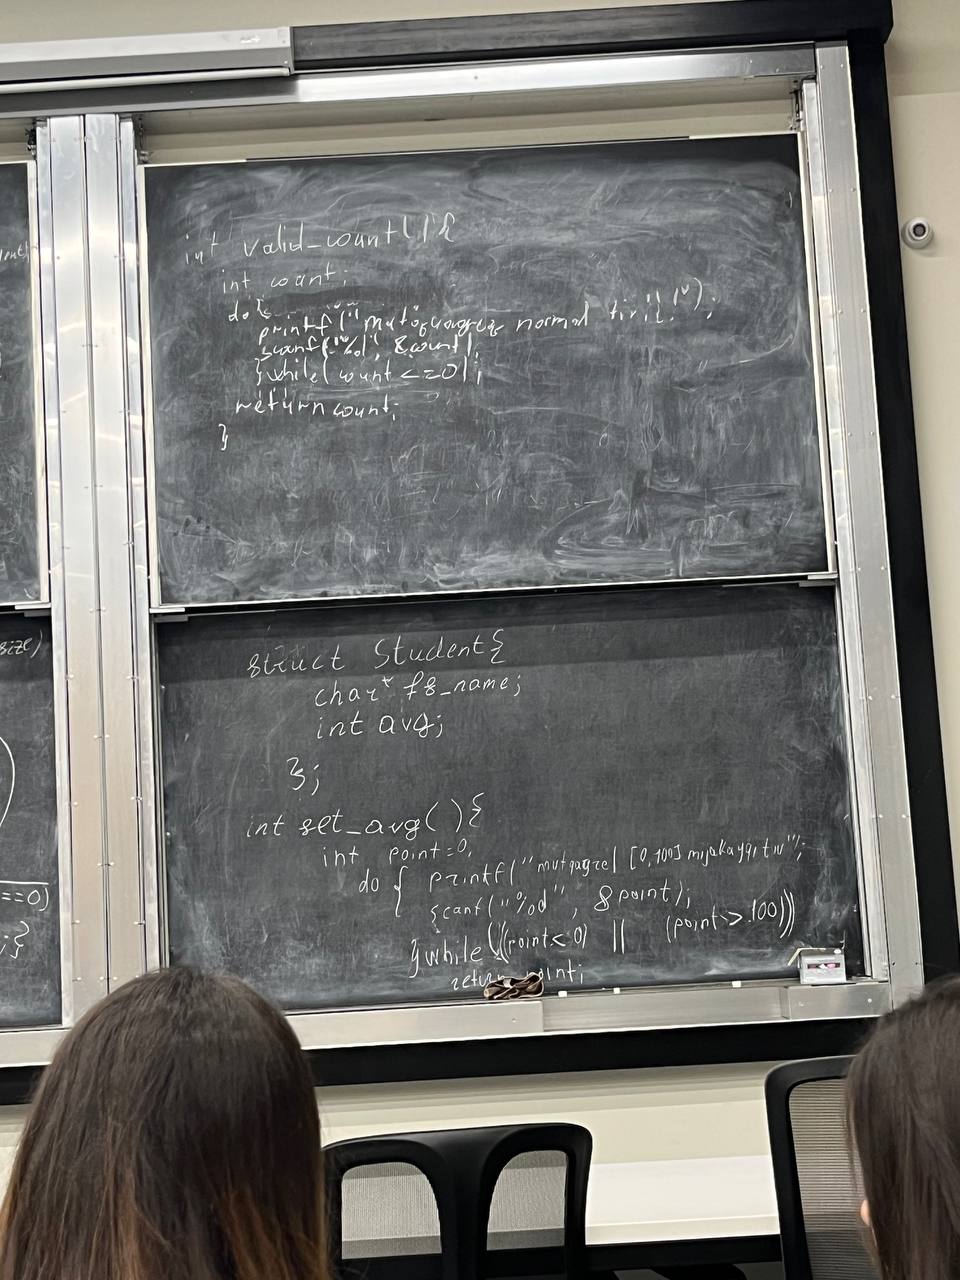 int valid_count(){
int count;
do{
printf("mutqagreq normal tiv!!!");
scanf("%d", &count);
}while(count <=0);
return count;
}
size)
==0)
;}
struct Student{
char* fs_name;
int avg;
};
int set_avg(){
int point=0;
do { printf("mutqagrel [0,100] mijakayqi tiv");
scanf("%d", &point);
}while((point<0) || (point>100))
return point;